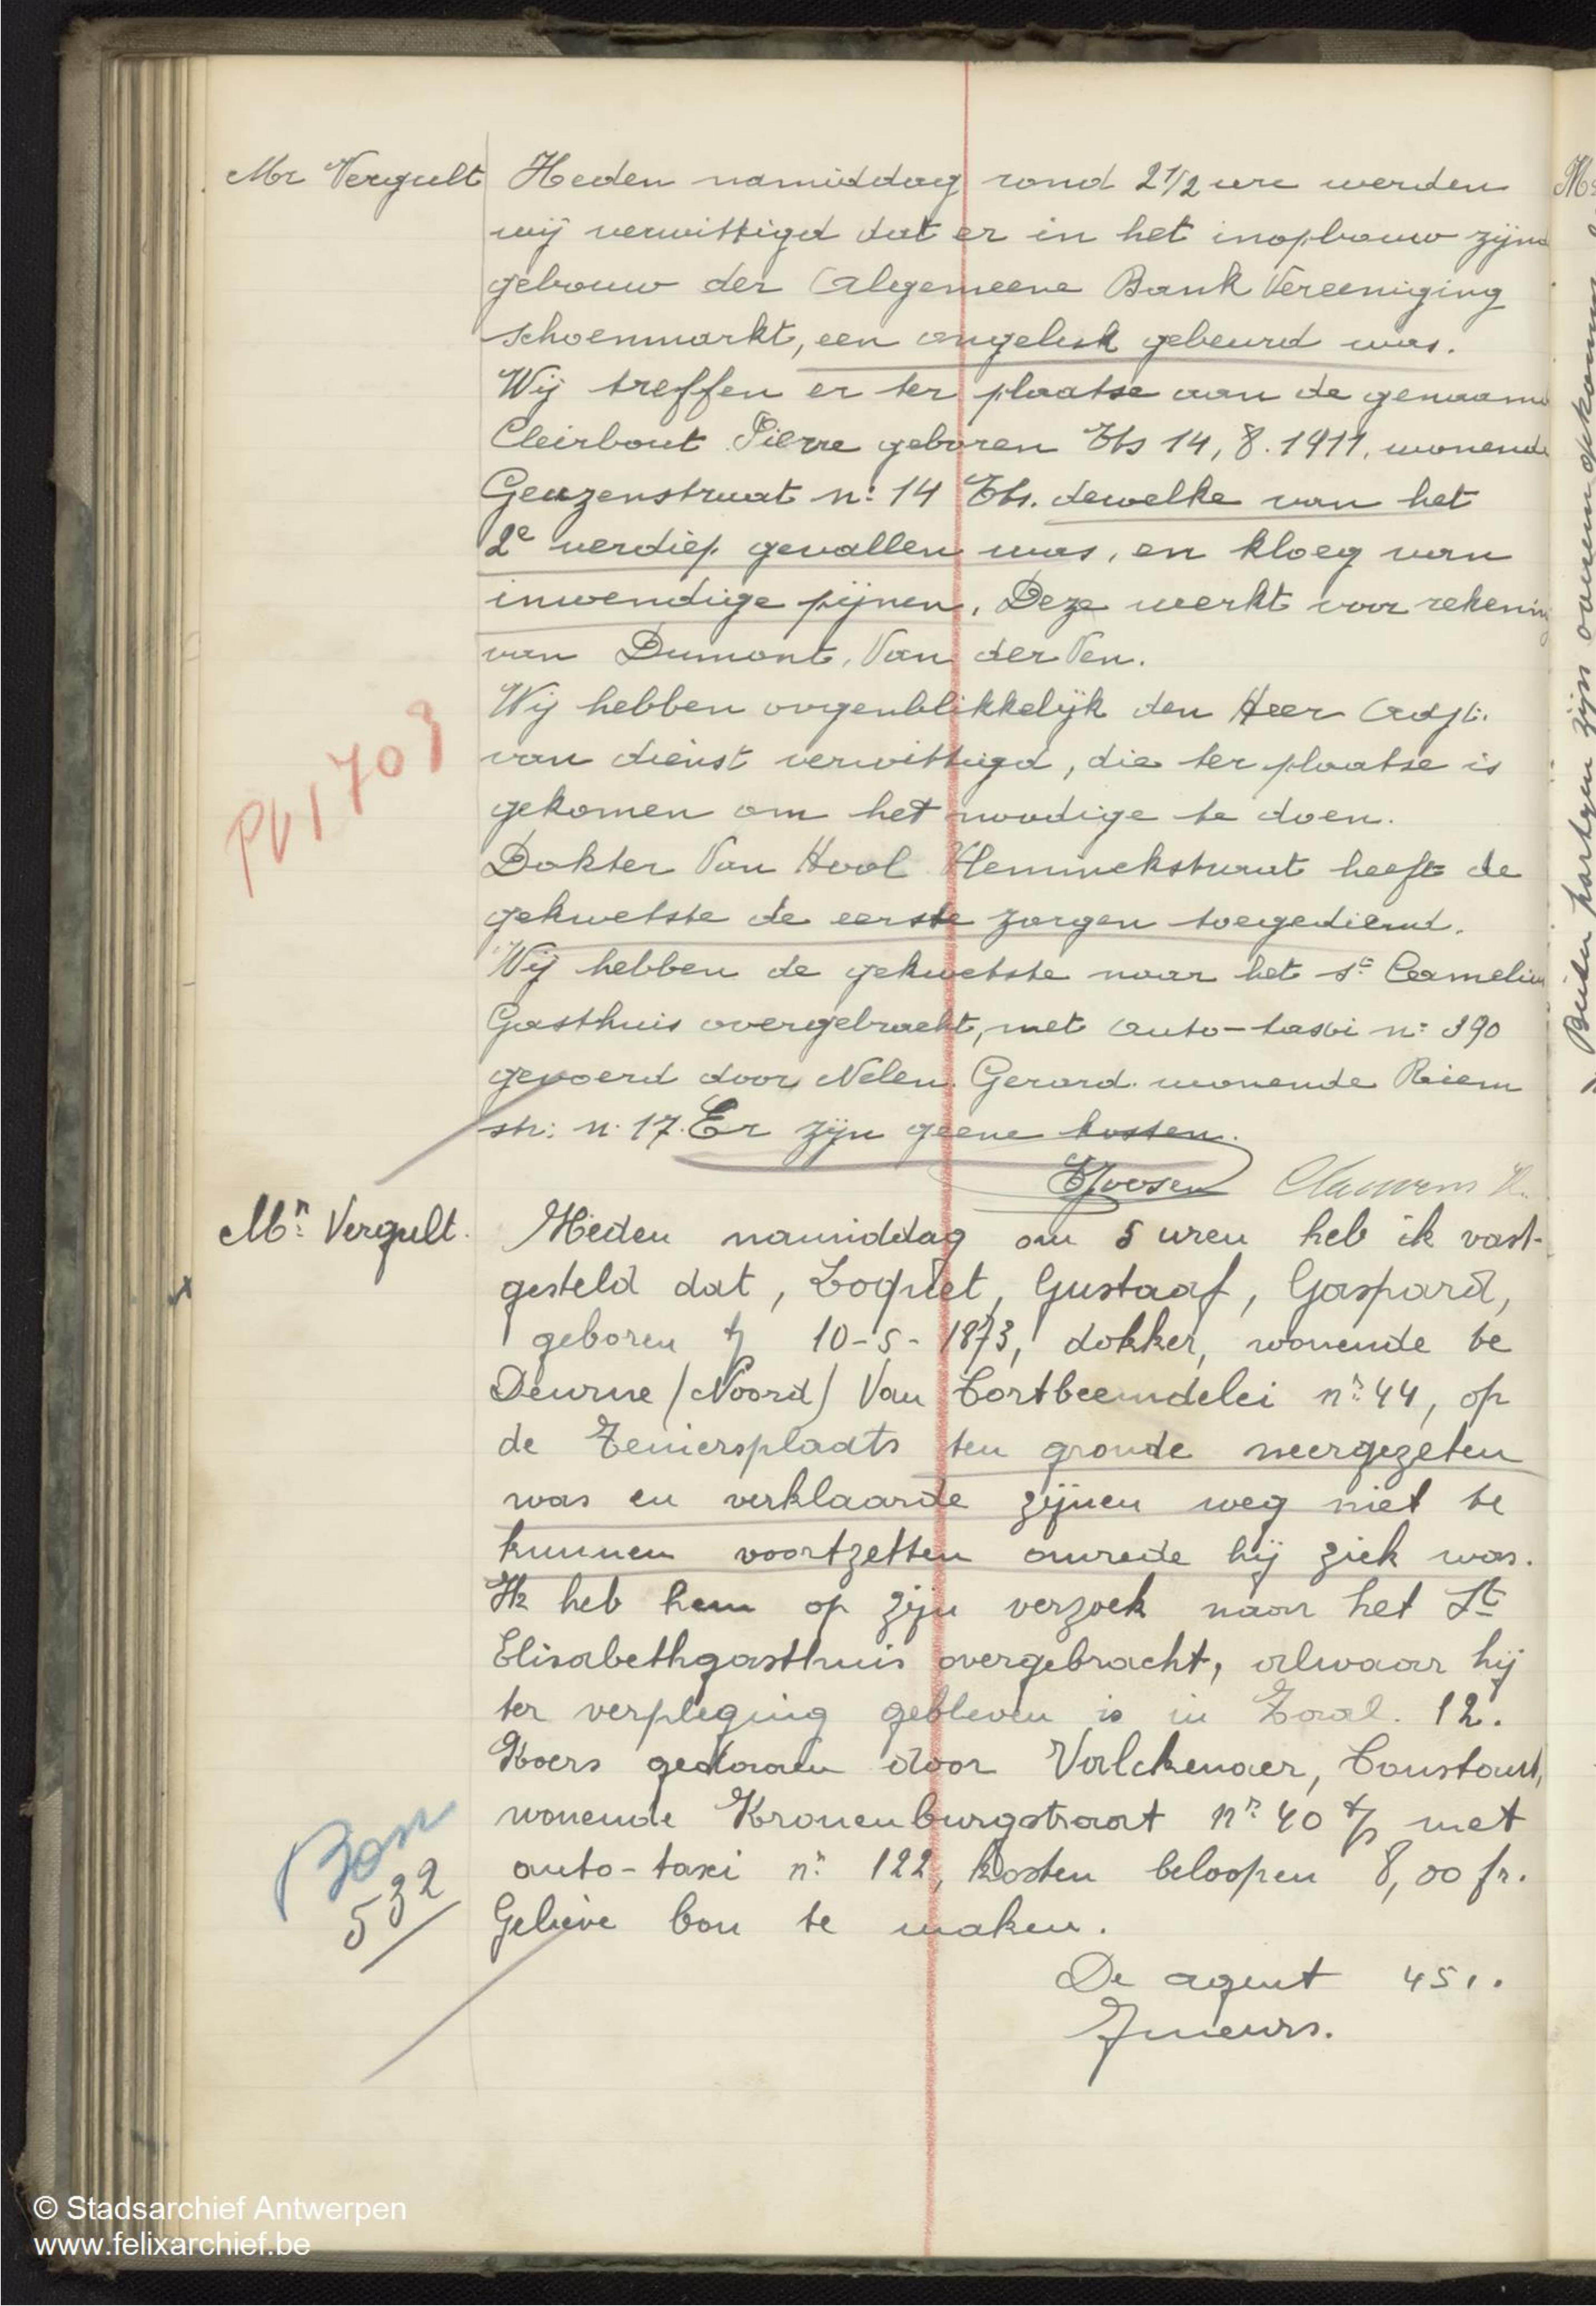 Mr Vergult Heden namiddag rond 2 1/2 ure werden
wij verwittigd dat er in het inopbouw zijnd
gebouw der Algemeene Bank Vereeniging
schoenmarkt, een ongeluk gebeurd was.
Wij treffen er ter plaatse aan de genaamd
Cleirbout Pierre geboren Ths 14, 8. 1911, wonende
Geuzenstraat n: 14 Ths. dewelke van het
2e verdiep gevallen was, en kloeg van
inwendige pijnen. Deze werkt voor rekening
van Dumont, Van der Ven.
Wij hebben oogenblikkelijk den Heer Adjt.
van dienst verwittigd, die ter plaatse is
gekomen om het noodige te doen.
PV 1709
Dokter Van Hool Vleminckstraat heeft de
gekwetste de eerste zorgen toegediend.
Wij hebben de gekwetste naar het st Camelius
Gasthuis overgebracht, met auto-taxi n: 390
gevoerd door Nelen Gerard wonende Riem
str: n: 17. Er zijn geene kosten.
EJoosen
Mr Vergult. Heden namiddag om 5 uren heb ik vast-
gesteld dat, Loquet, Gustaaf, Gaspard,
geboren 10-5-1873, dokker, wonende te
Deurne (Noord) Van Cortbeemdelei nr 44, op
de Teniersplaats ten gronde neergezeten
was en verklaarde zijnen weg niet te
kunnen voortzetten omrede hij ziek was.
Ik heb hem op zijn verzoek naar het St
Elisabethgasthuis overgebracht, alwaar hij
ter verpleging gebleven is in Zaal. 12.
Koers gedaan door Valckenaer, Constant,
wonende Kronenburgstraat nr 40 met
auto-taxi nr 122, kosten beloopen 8,00 fr.
Gelieve bon te maken.
Bon
532
De agent 451.
Beiden partijen zijn overeengekomen
© Stadsarchief Antwerpen
www.felixarchief.be